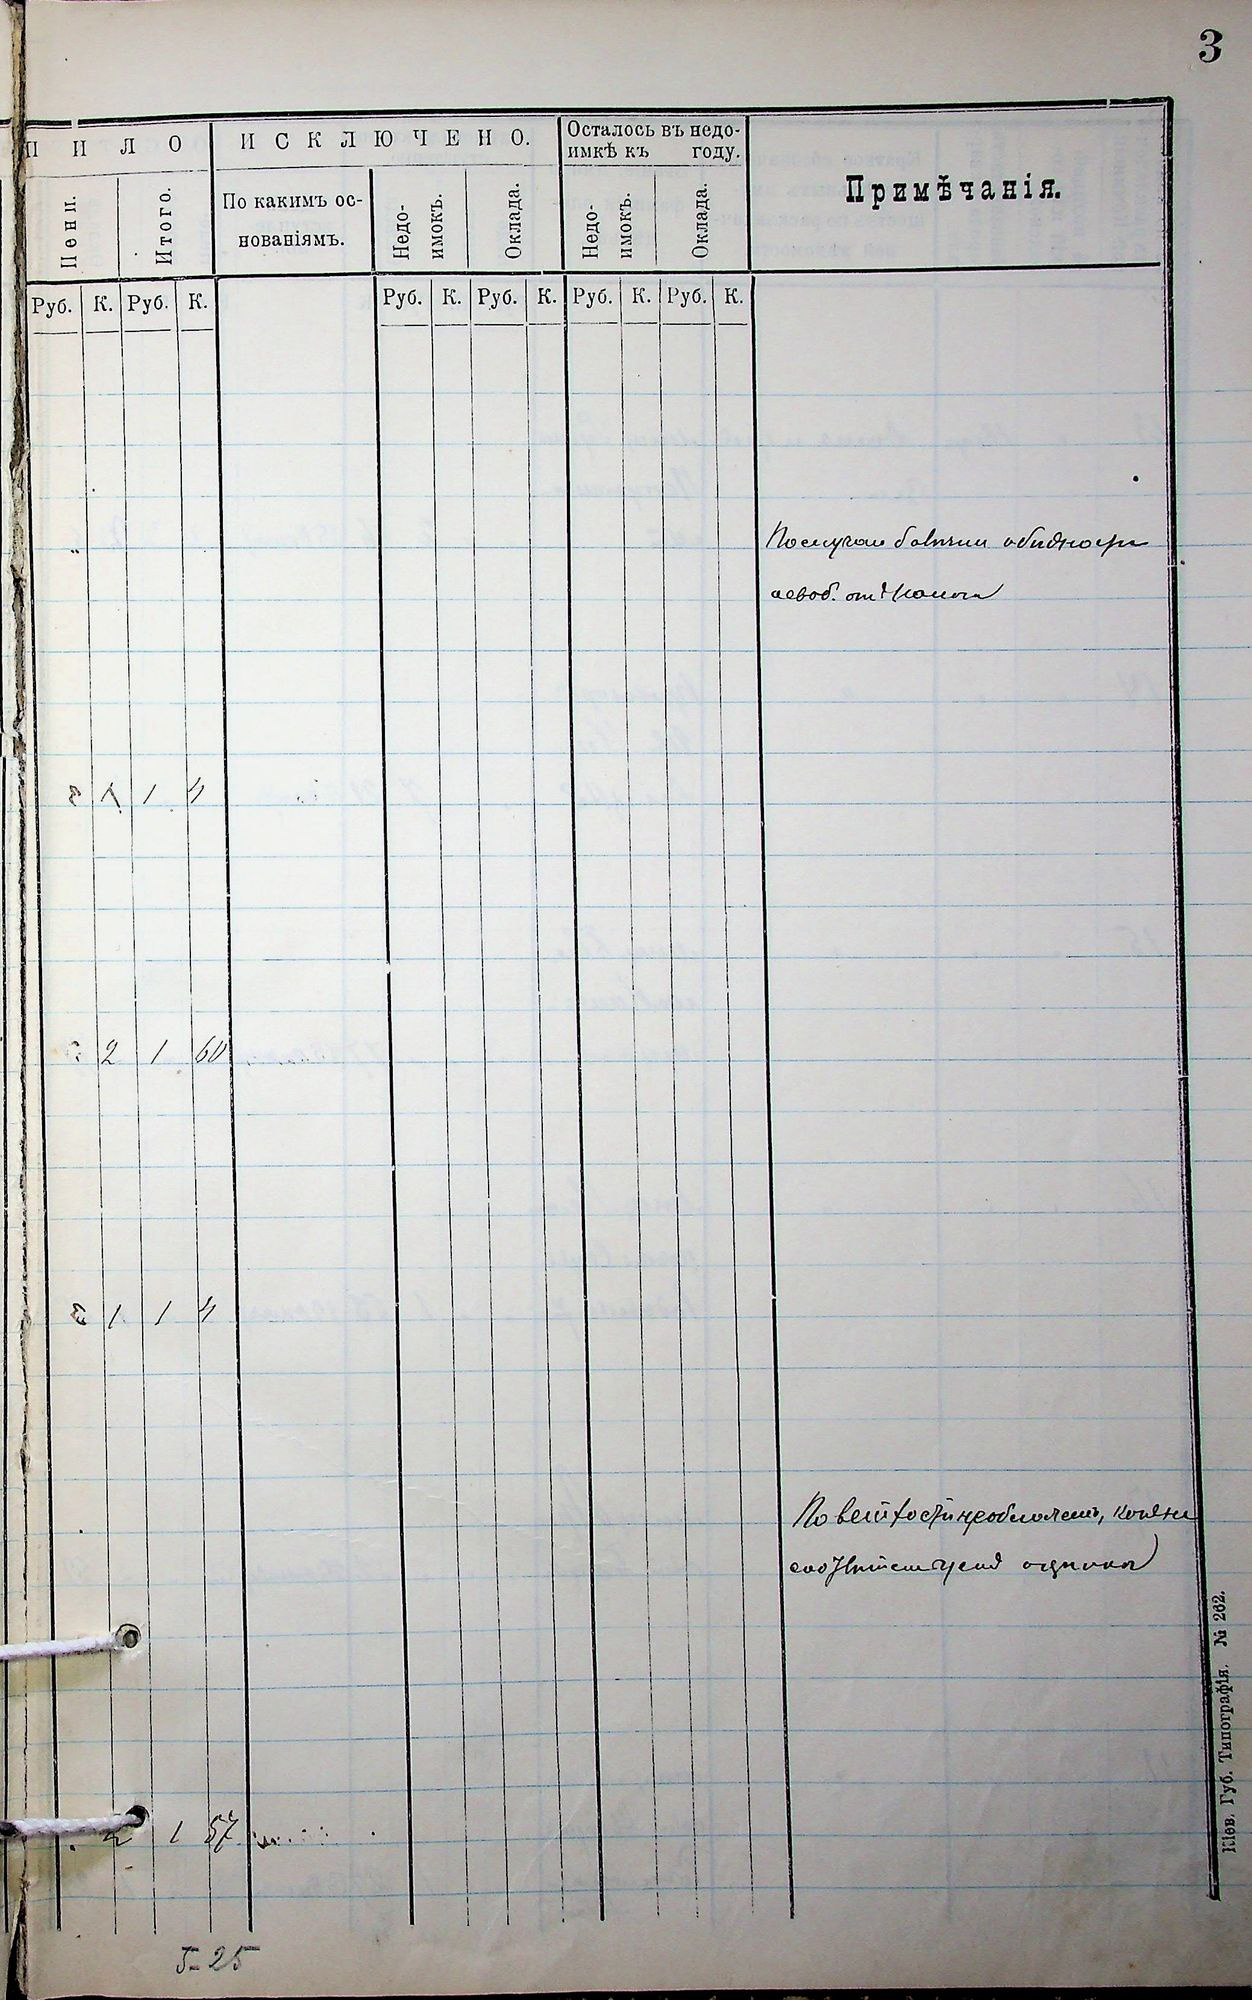 3
ПИЛО
ИСКЛЮЧЕНО.
Осталось въ недо-
имкѣ къ году.
Примѣчанія.
Пени.
Итого.
По какимъ ос-
нованіямъ.
Недо-
имокъ.
Оклада.
Недо-
имокъ.
Оклада.
Руб. К. Руб. К. Руб. К. Руб. К. Руб. К. Руб. К.
По случаю
освоб. отъ
1 4
2 1 60
1 1 4
По
2 1 57
5-25
Кіев. Губ. Типографія. № 262.